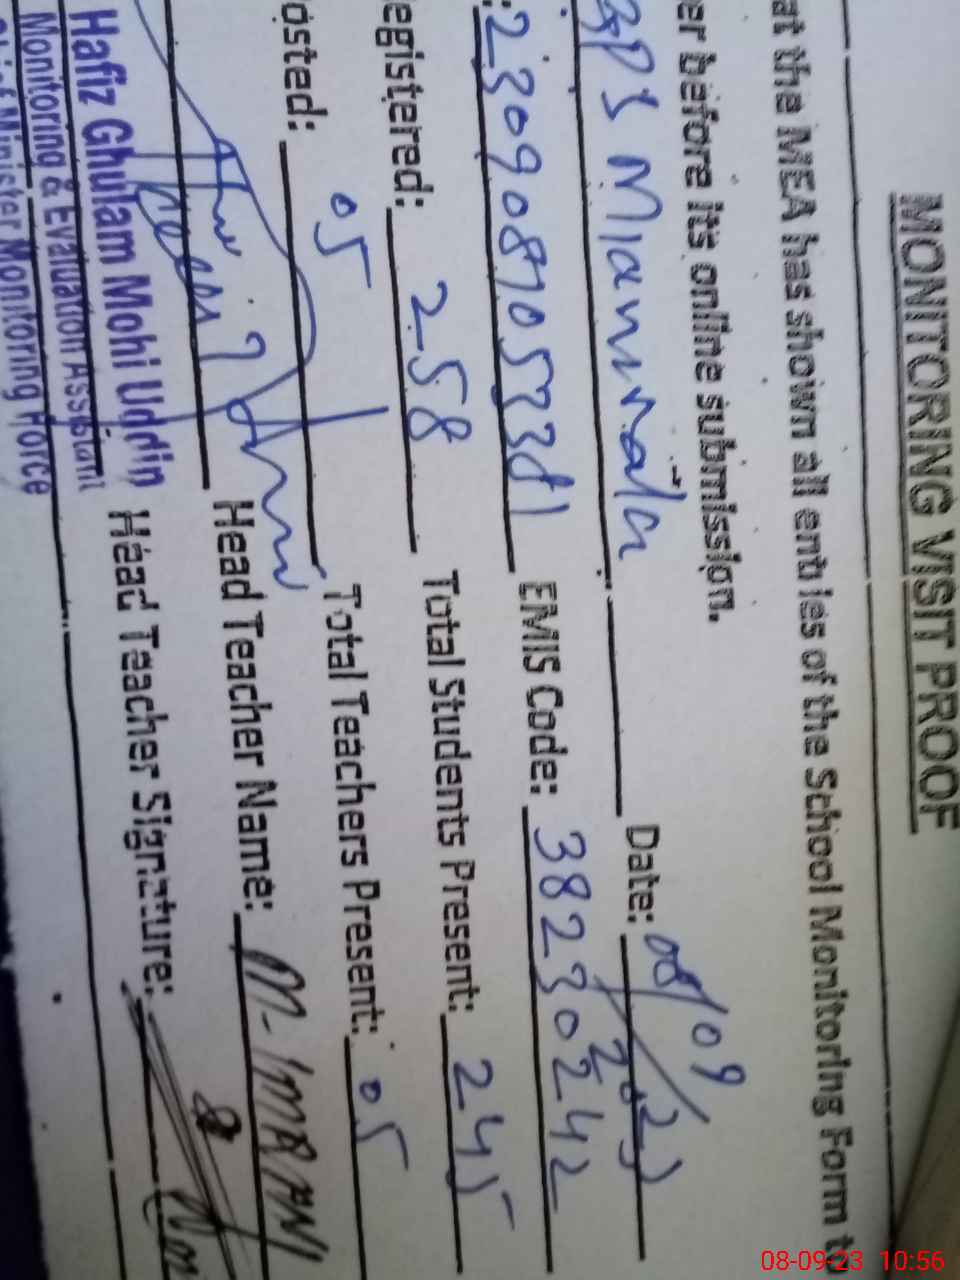 MONITORING VISIT PROOF
at the MEA has shown all entries of the School Monitoring Form to
er before its online submission.
Date: 08/09/2023
EMIS Code: 38230242
egistered: 258 Total Students Present: 245
osted: 05 Total Teachers Present: 05
Head Teacher Name: M. IMRAN
Hafiz Ghulam Mohi Uddin Head Teacher Signature:
Monitoring & Evaluation Assistant
Chief Minister Monitoring Force
08-09-23 10:56